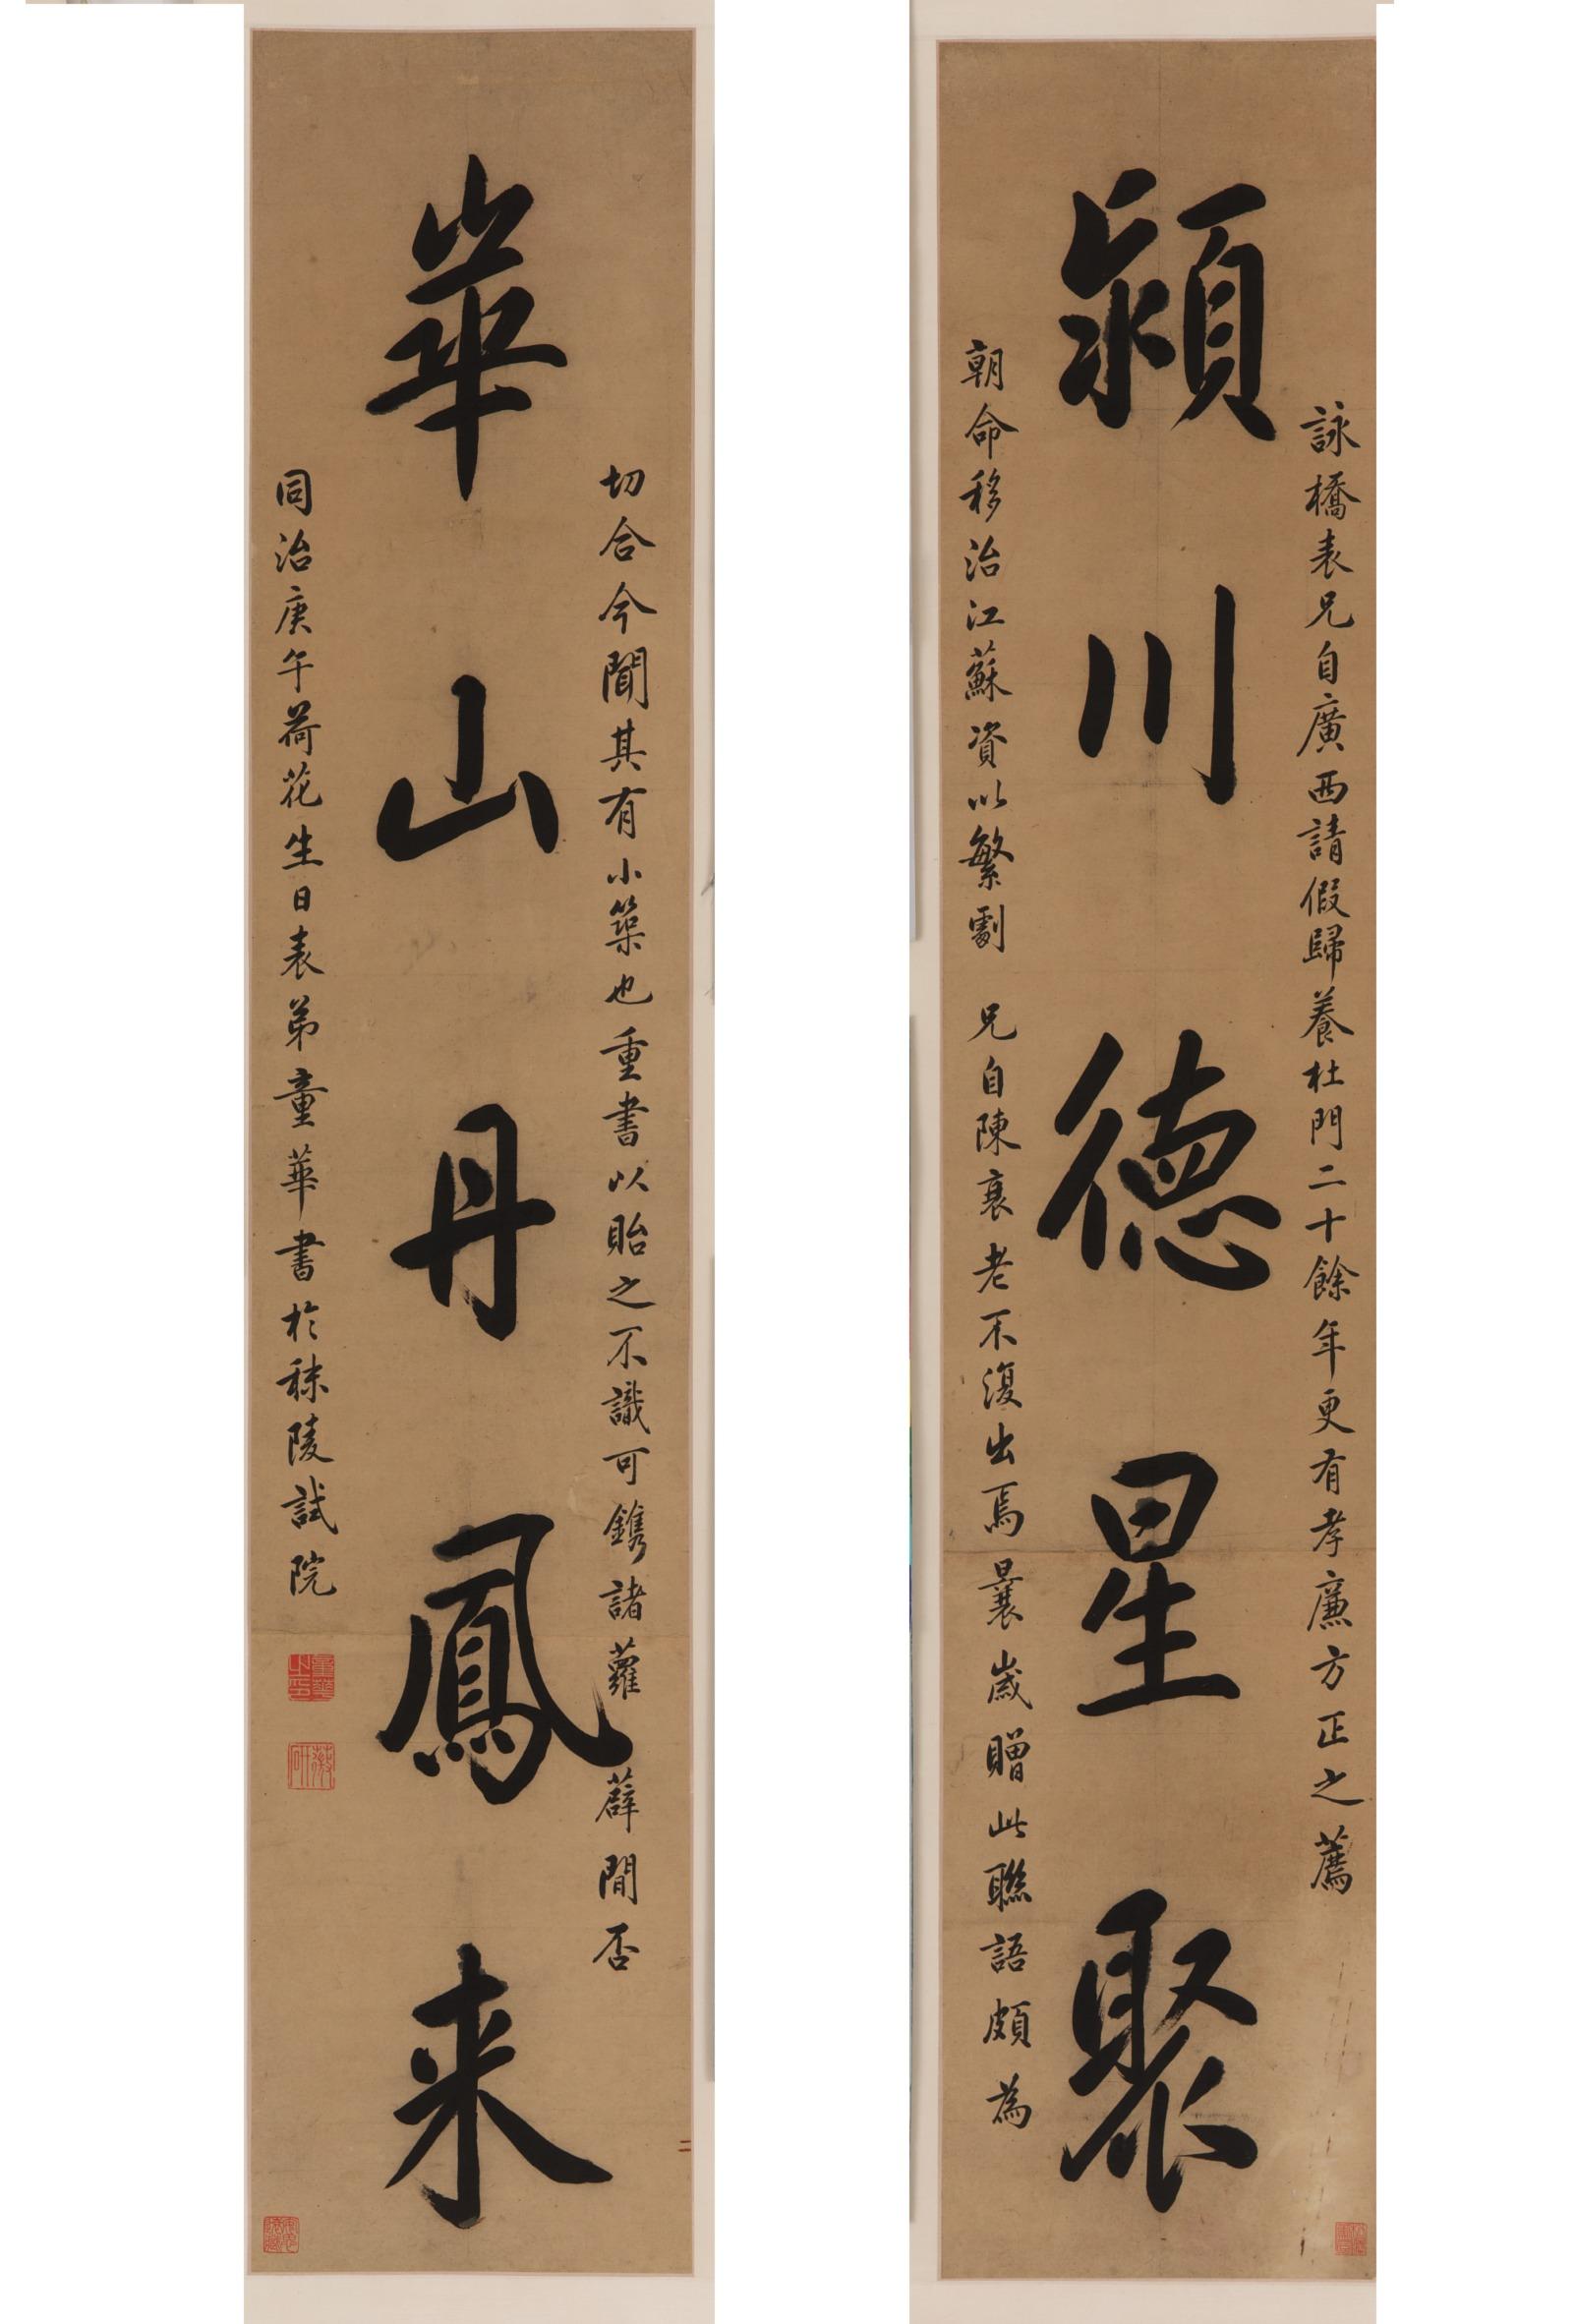 詠橋表兄自廣西請假歸養杜門二十餘年更有孝廉方正之薦
潁川德星聚
朝命移治江蘇資以繁劇 兄自陳衰老不復出焉曩歲贈此聯語頗為
切合今聞其有小築也重書以貽之不識可鐫諸蘿薜間否
華山丹鳳来
同治庚午荷花生日表弟童華書於秣陵試院
童華之印
薇研